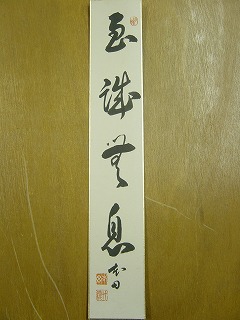 至誠無息